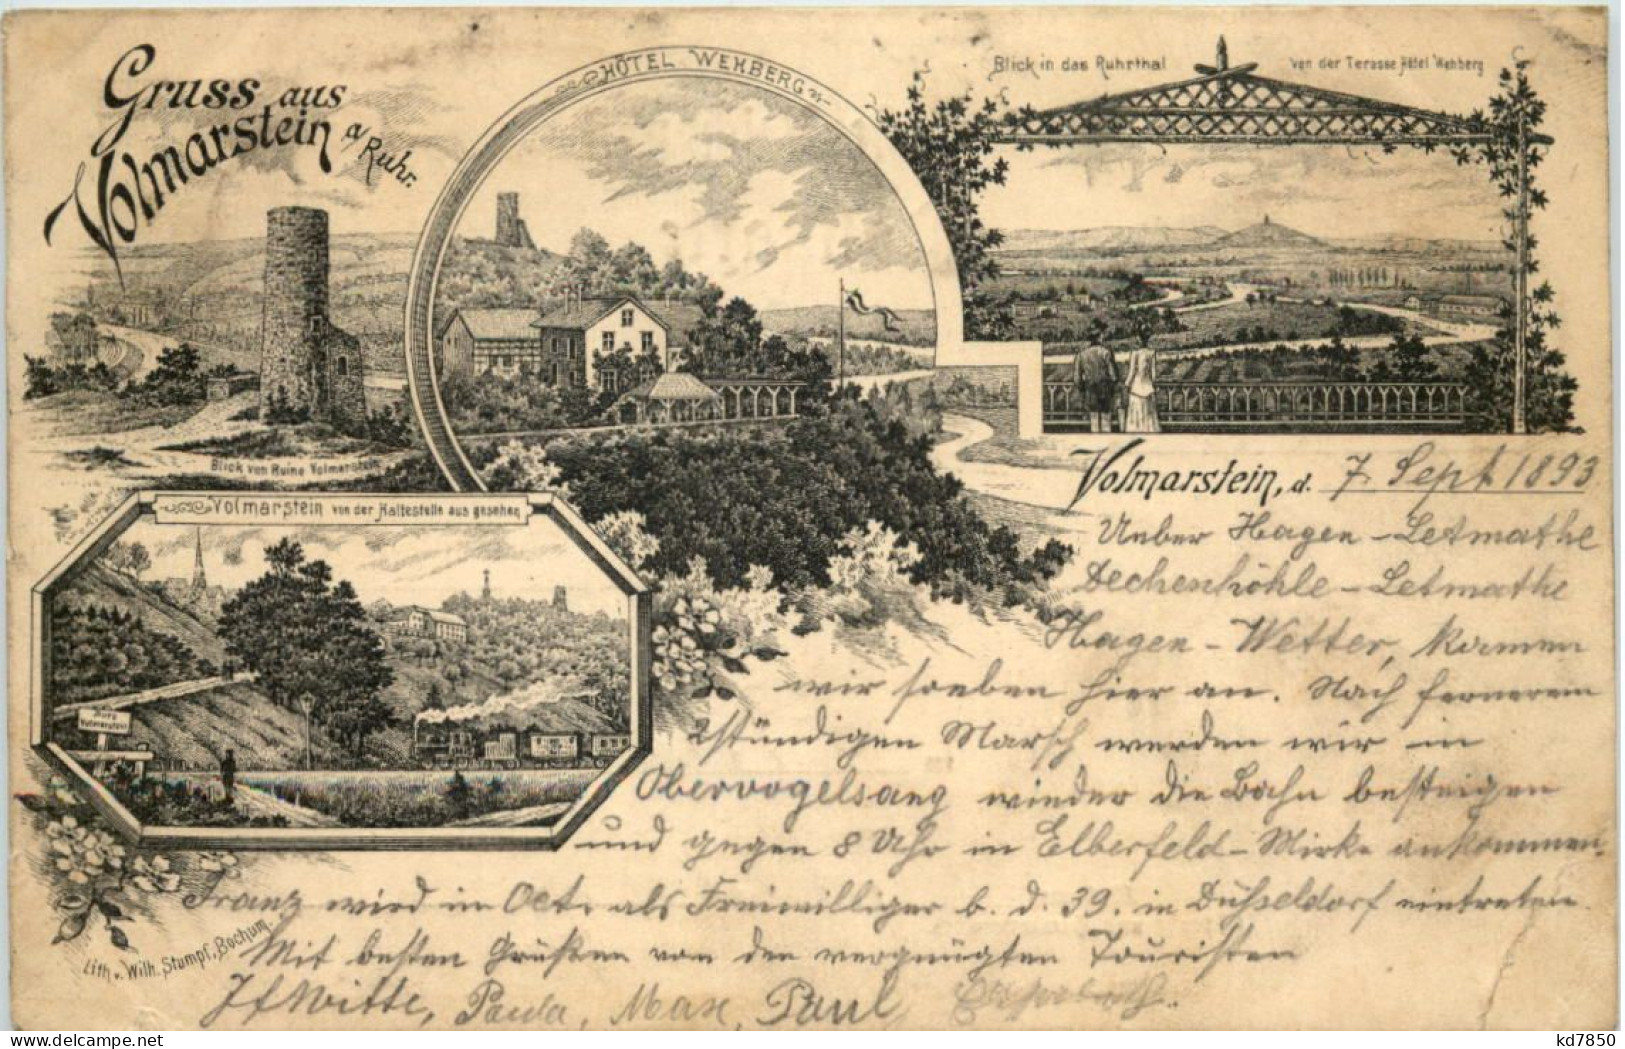 Gruss aus
Volmarstein a/Ruhr.
HÔTEL WEHBERG
Blick in das Ruhrthal von der Terasse Hôtel Wehberg
Blick von Ruine Volmarstein
Volmarstein von der Haltestelle aus gesehen
Volmarstein, d. 7. Sept 1893
Ueber Hagen - Letmathe
Dechenhöhle - Letmathe
Hagen - Wetter, kommen
wir soeben hier an. Nach fernerem
2stündigen Marsch werden wir in
Obervogelsang wieder die Bahn besteigen
und gegen 8 Uhr in Elberfeld - Mirke ankommen.
Franz wird im Oct. als Freiwilliger b. d. 39. in Düsseldorf eintreten.
Mit besten Grüßen von den vergnügten Touristen
Witte, Paula, Max, Paul
Lith. v. Wilh. Stumpf, Bochum.
delcampe.net
kd7850